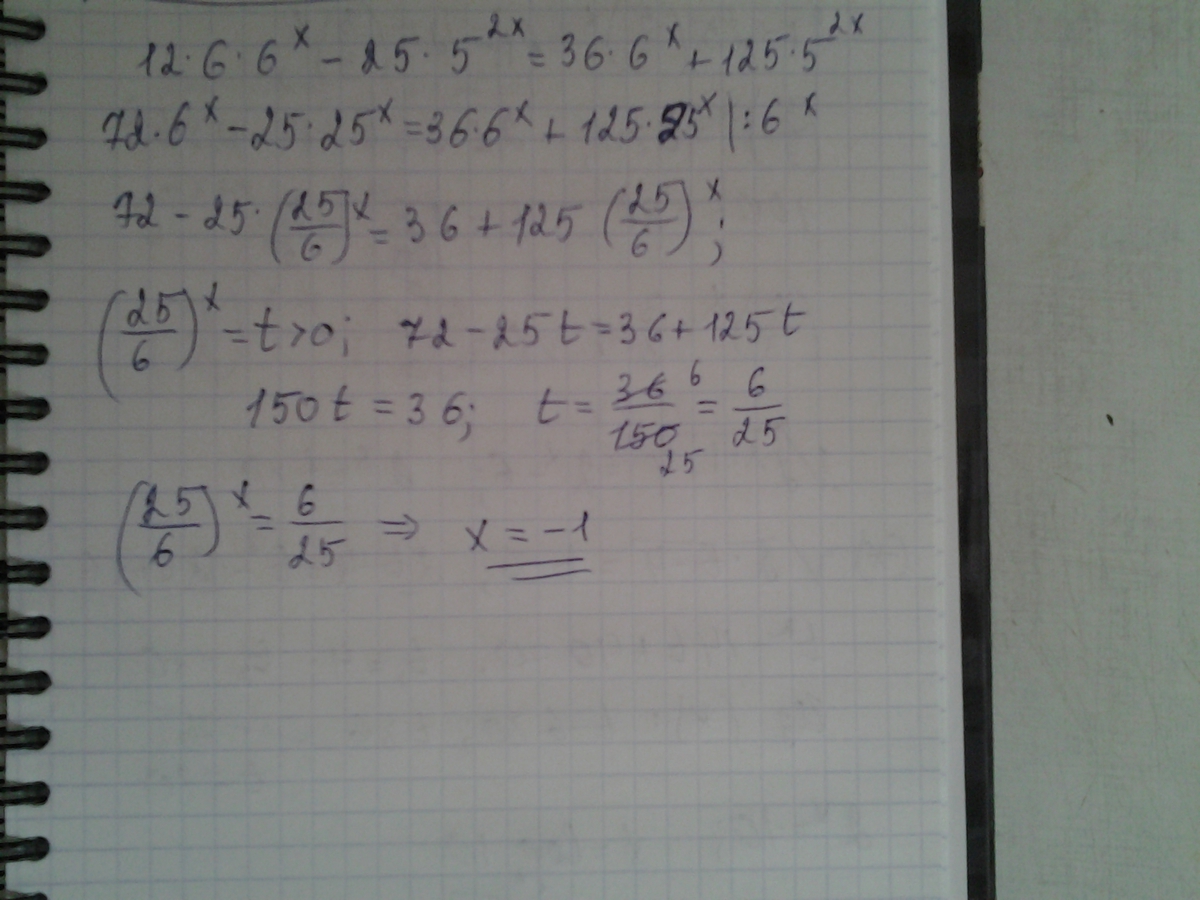 12·6·6^x − 25·5^2x = 36·6^x + 125·5^2x
72·6^x − 25·25^x = 36·6^x + 125·25^x |:6^x
72 − 25·(25/6)^x = 36 + 125 (25/6)^x;
(25/6)^x = t>0; 72 − 25t = 36 + 125t
150t = 36; t = 36/150 6 25 = 6/25
(25/6)^x = 6/25 ⇒ x = −1